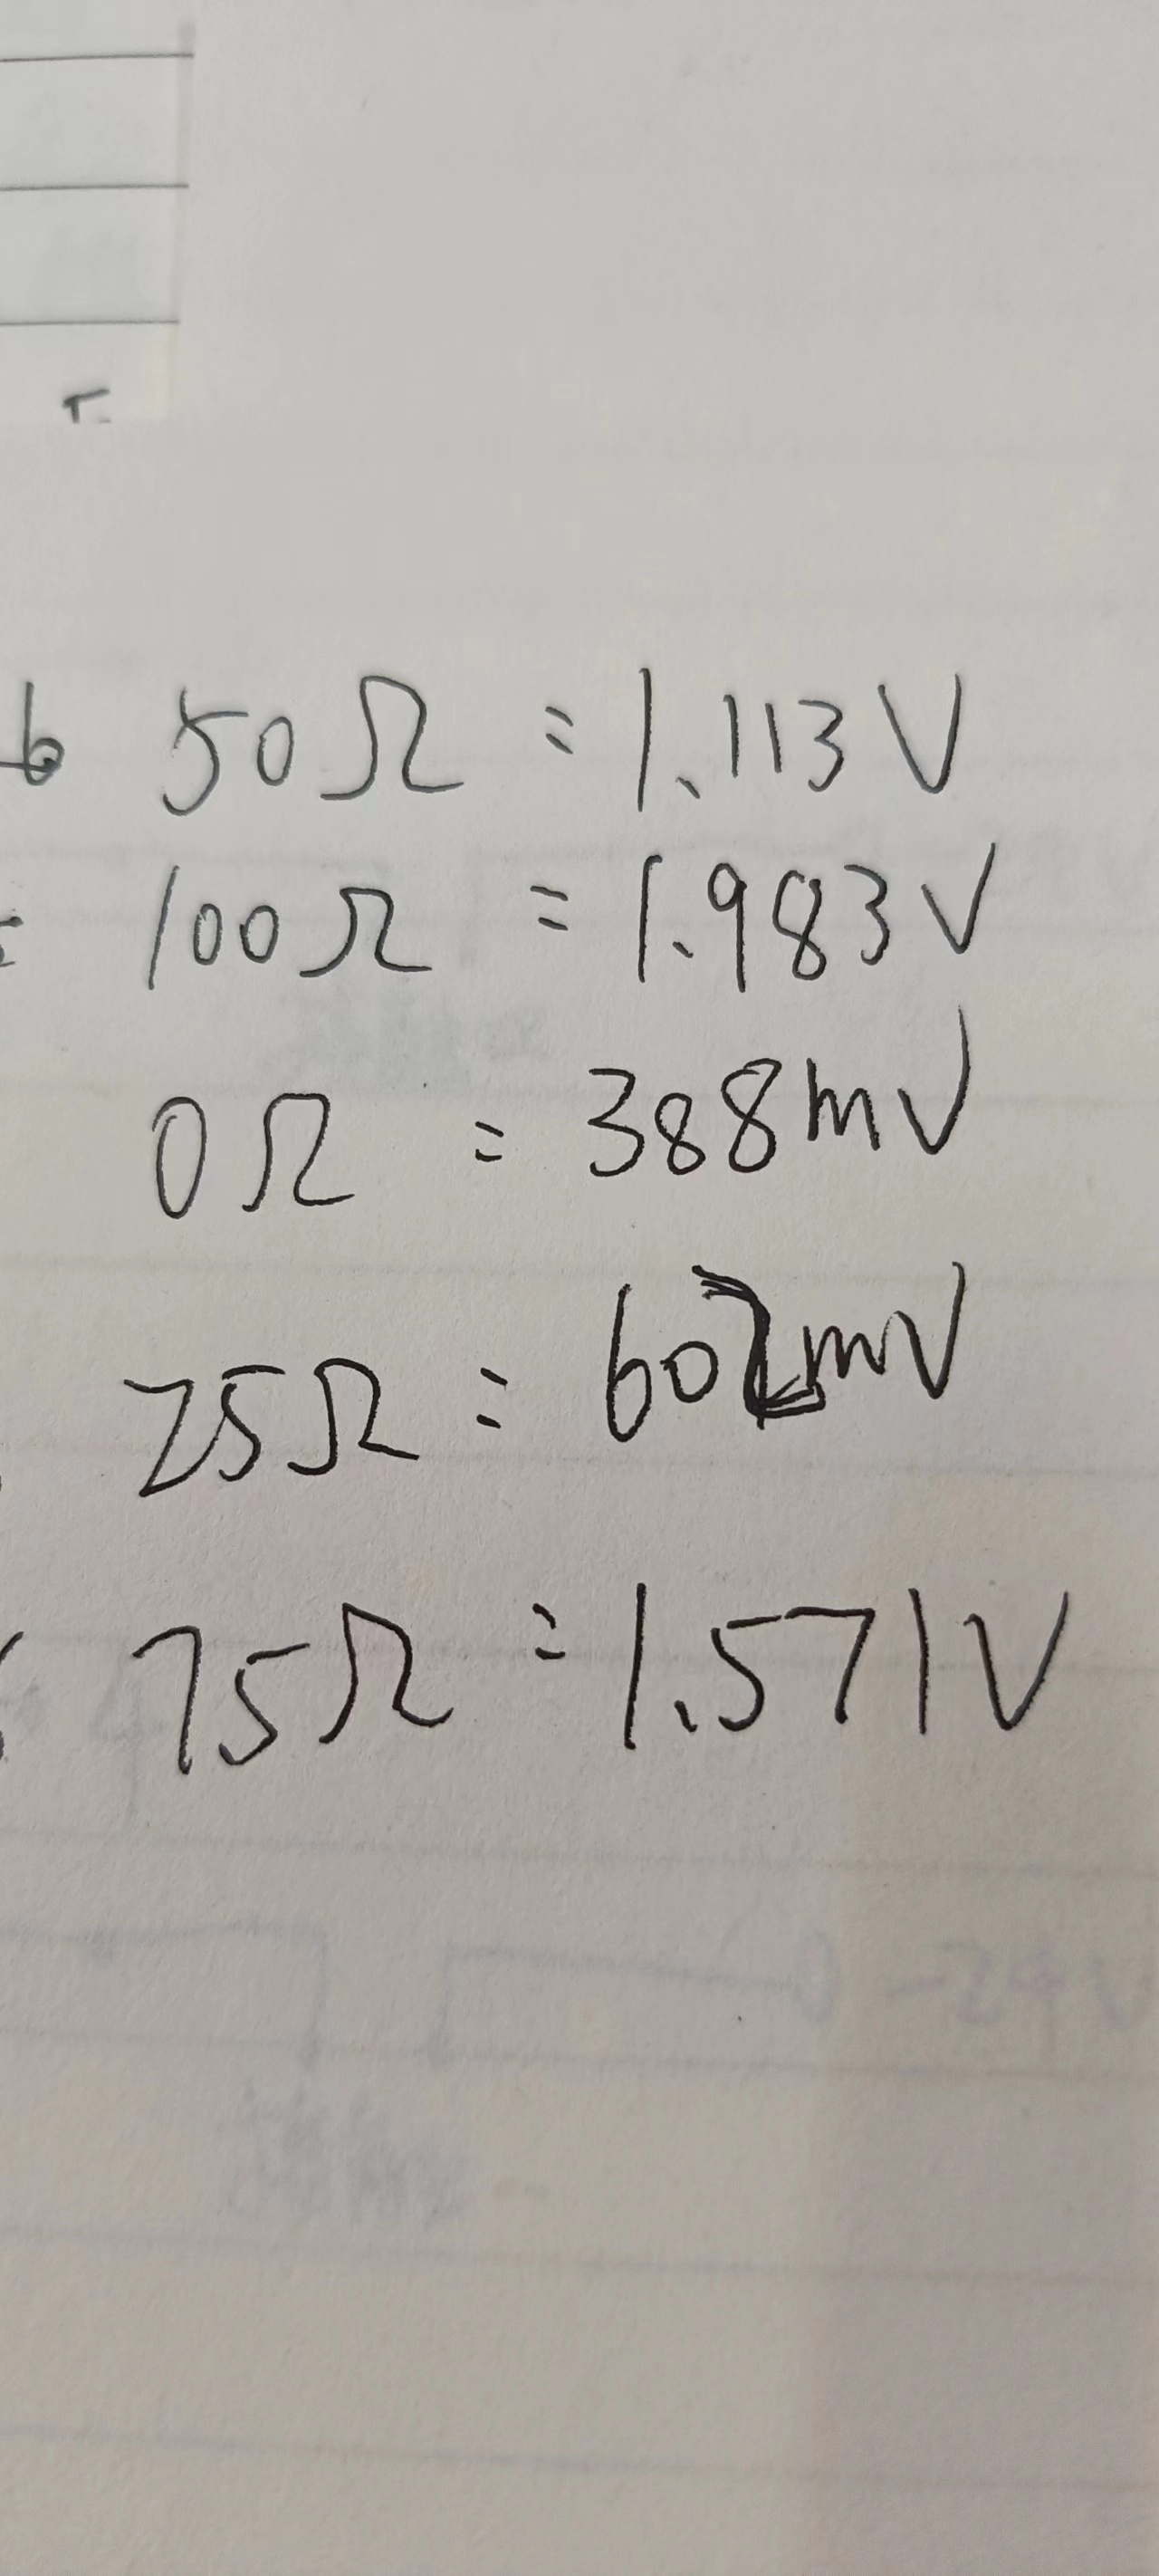 6 50Ω = 1.113V
100Ω = 1.983V
0Ω = 388mV
25Ω = 602mV
75Ω = 1.571V